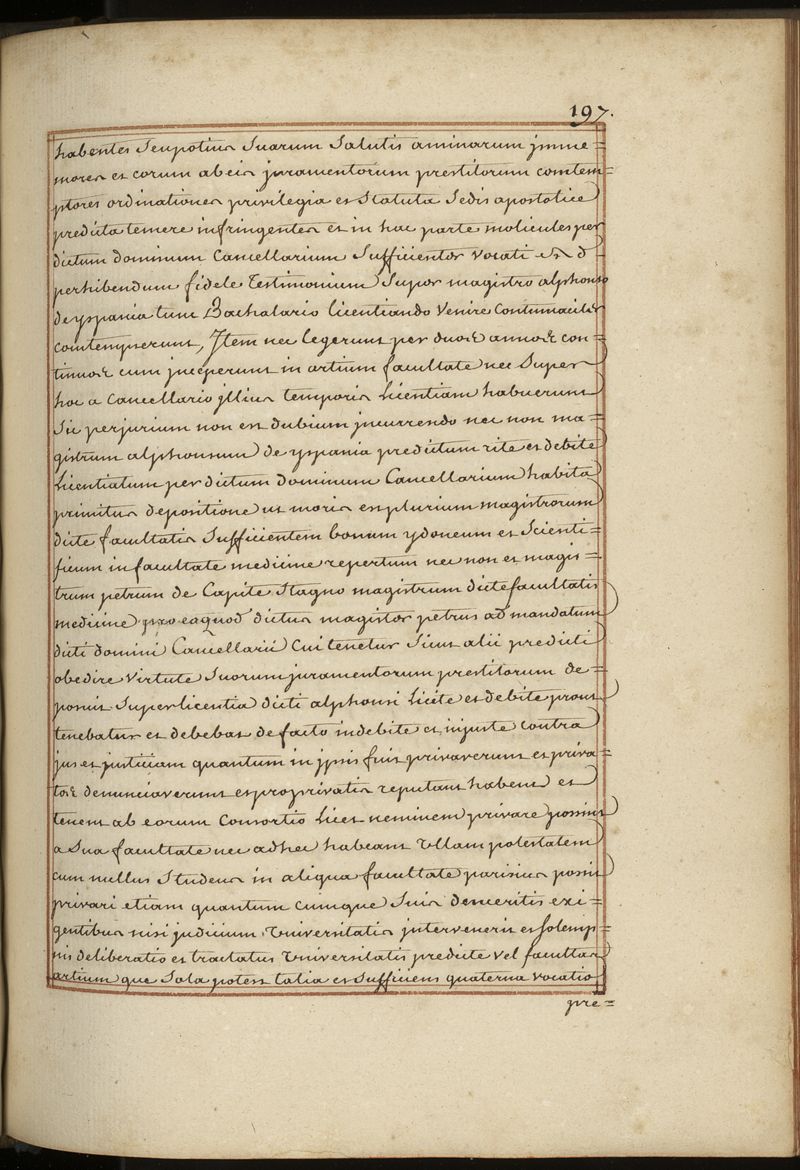 197.
habentes Seupotius Suarum Salutis aminarum jmme =
mores et eorum ab eis juramentorum prestitorum comtem =
ptores ordinationes privilegia et Statuta Sedis apostolice
predicta temere infringentes et in hac parte moticules per
dictum dominum Cancellarium Sufficienter vocati et d
perhibendum fidele Testimonium Super magistro alphonso
de yspania tum Bachalario licentiando Venire Contumaciter
comtempserunt, Jtem nec legerunt per duos annos con =
tinuos cum jnceperunt in artium facultate nec Super
hoc a Cancellario jllius temporis Licentiam habuerunt
Sic perjurium non est dubium jncurrendo nec non ma =
gistrum alphonsum de yspania predictum rite et debite
Licentiatum per dictum dominum Cancellarium habita
primitus depositione ut moris est plurium magistrorum
dicte facultatis Sufficientem bonum ydoneum et Scienti =
ficum in facultate medicine repertum nec non et magis =
trum petrum de Capite Stagno magistrum dicte facultatis
medicine pro eaquod dictus magister petrus ad mandatum
dicti domini Cancellarii Cui tenetur Sicut alii predicti
obedire Virtute Suorum juramentorum prestitorum de =
posuit Super licentia dicti alphonsi Licite et debite prout
tenebatur et debebat de facto indebite et injuste contra
jus et justiciam quantum in jpsis fuit privaverunt et priva =
tos denunciaverunt et pro privatis reputant habent et
tenent ab eorum Consortio Licet neminem privare possint
a Sua facultate nec ad hec habeant Vllam potestatem
cum nullus Studens in aliqua facultate parisius possit
privari etiam quantum cumque Suis demeritis exi =
gentibus nisi judicium Vniversitatis jntervenerit et Solemp =
nis deliberatio et tractatus Vniversitatis predicte vel facultas
artium que Sola potest talia et Sufficiens quaterna vocatio
pre =